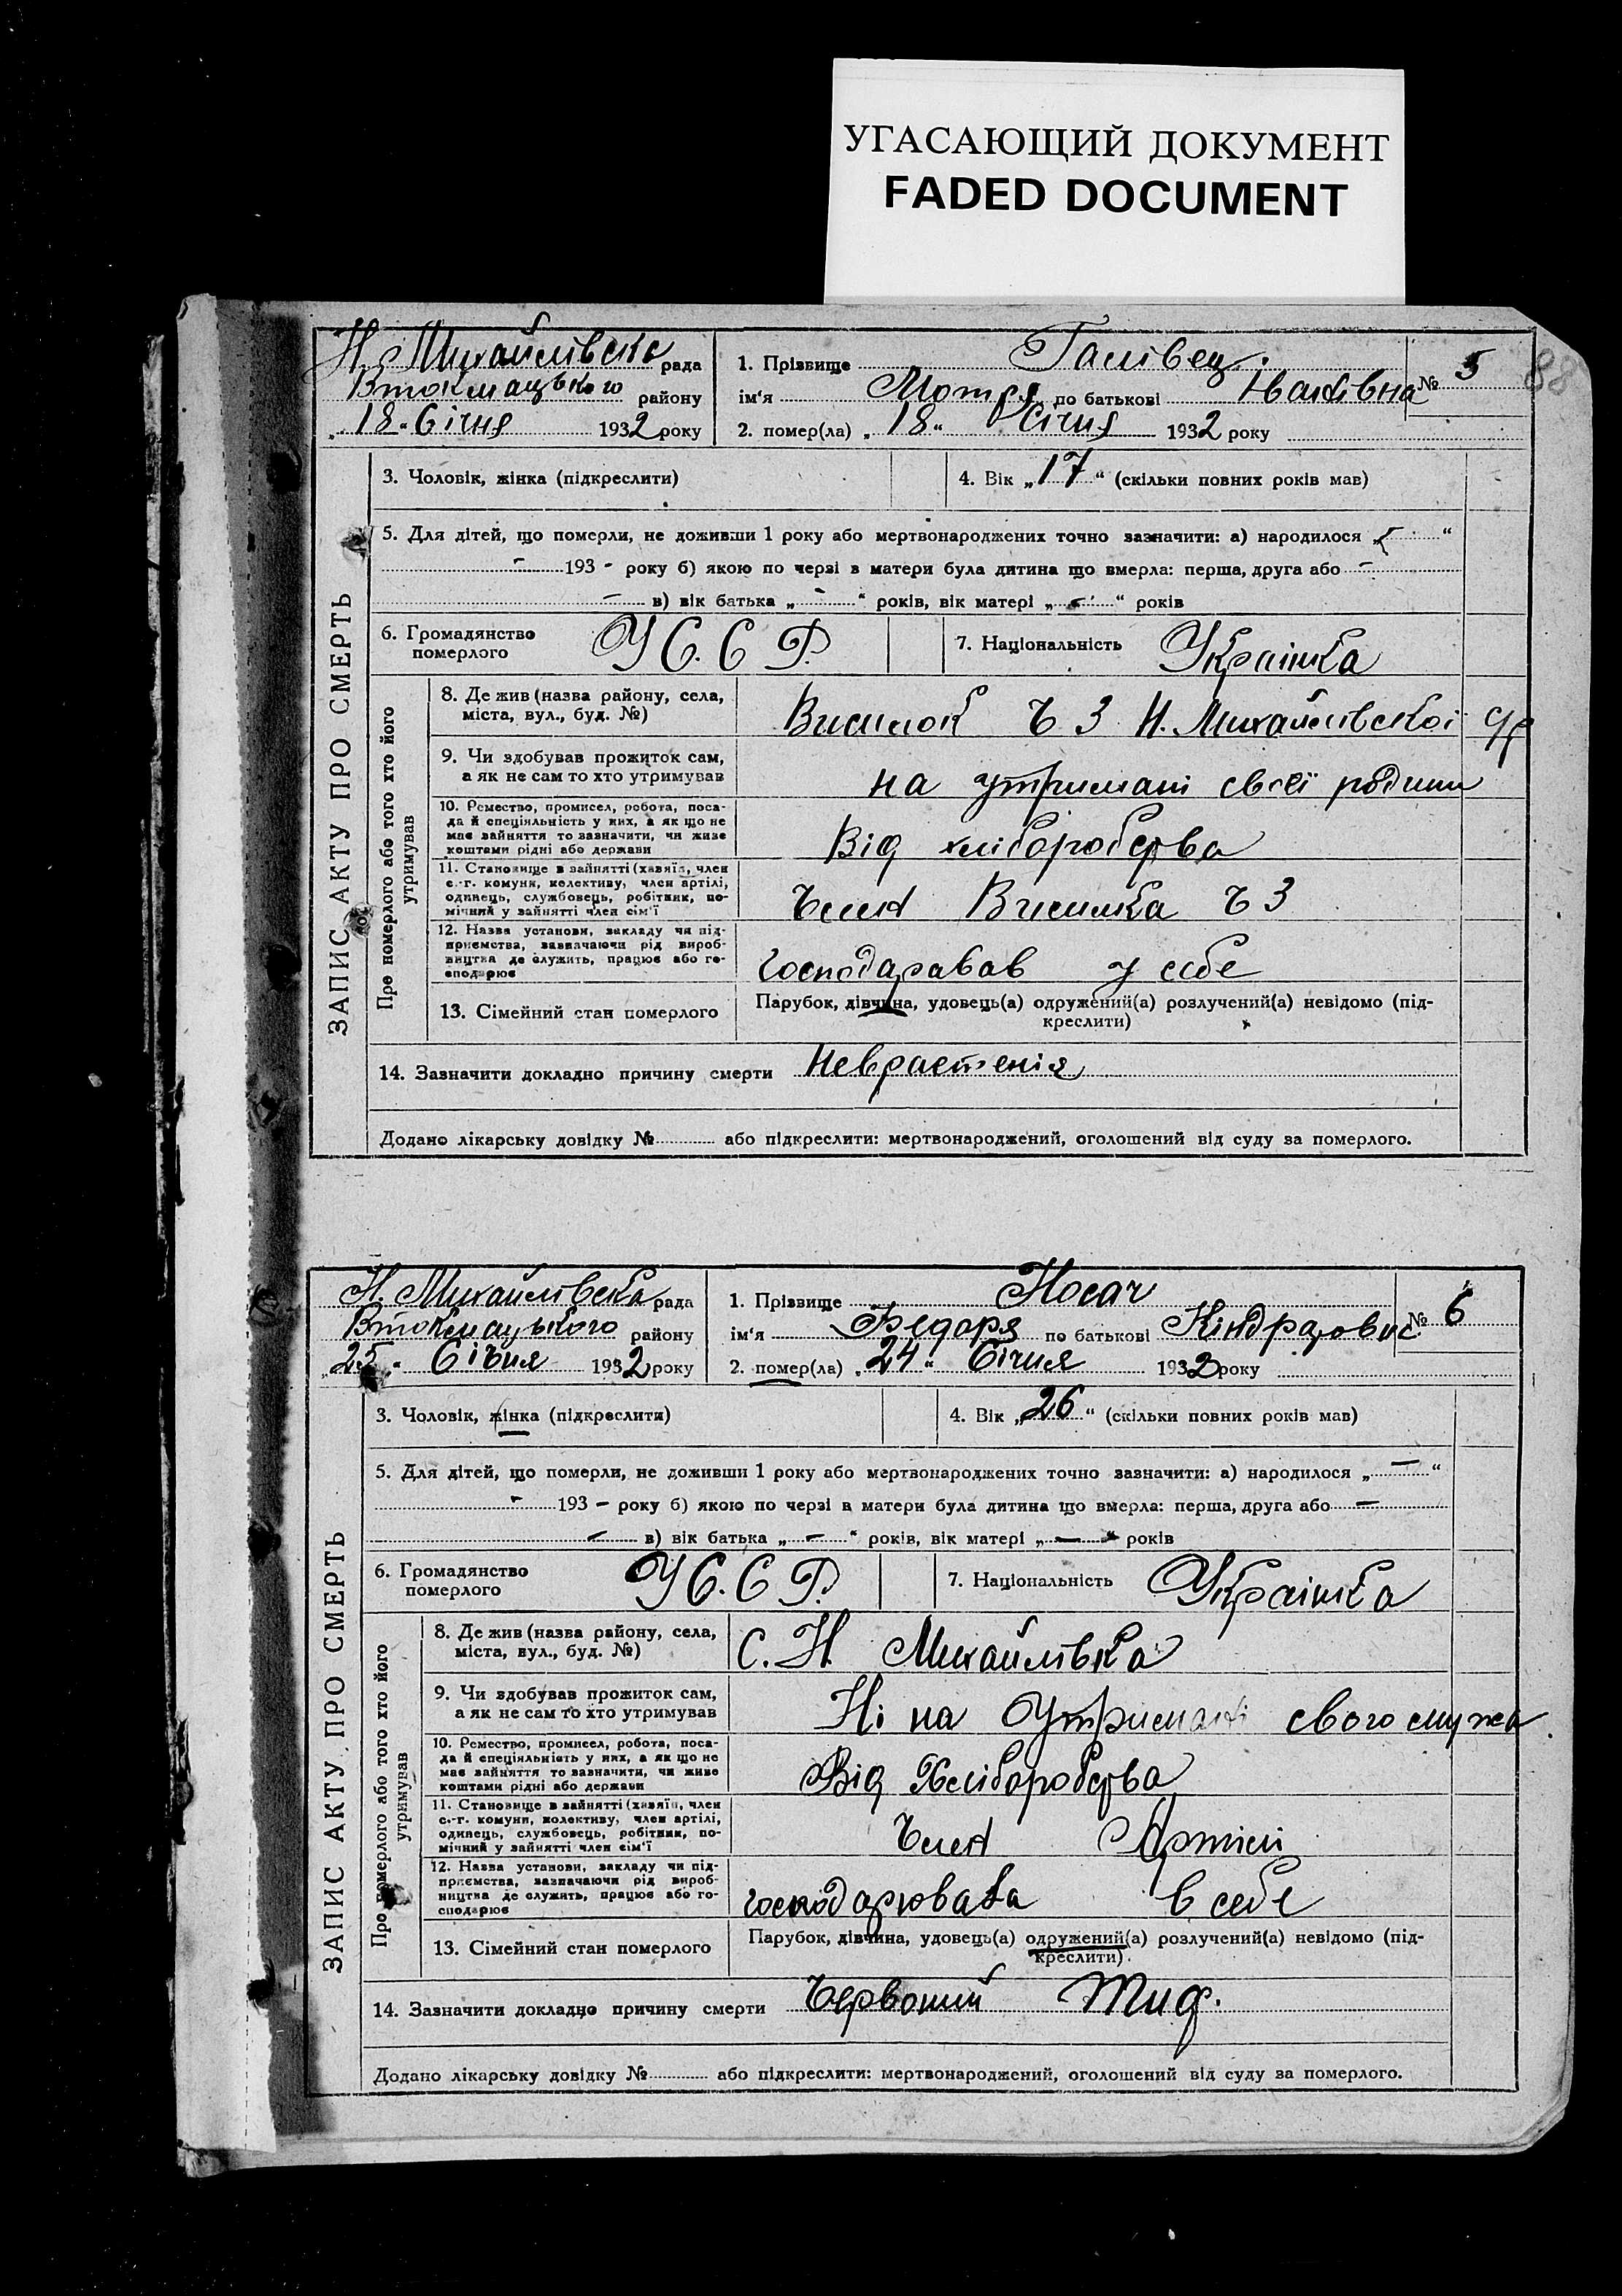 УГАСАЮЩИЙ ДОКУМЕНТ
FADED DOCUMENT
88
Н. Михайлівська рада
Втокмацького району
„18“ Січня 1932 року
1. Прізвище Галівец.
ім‘я Мотря по батькові Іванівна
№ 5
2. помер(ла) „18“ Січня 1932 року
ЗАПИС АКТУ ПРО СМЕРТЬ
3. Чоловік, жінка (підкреслити)
4. Вік „17“ (скільки повних років мав)
5. Для дітей, що померли, не доживши 1 року або мертвонароджених точно зазначити: а) народилося „-“
- 193 - року б) якою по черзі в матери була дитина що вмерла: перша, друга або -
- в) вік батька „-“ років, вік матері „-“ років
6. Громадянство померлого У С. С Р.
7. Національність Українка
Про померлого або того хто його утримував
8. Де жив (назва району, села, міста, вул., буд. №)
Висилок Ч 3 Н. Михайлівської
9. Чи здобував прожиток сам, а як не сам то хто утримував
на утримані своєї родини
10. Ремество, промисел, робота, посада й спеціяльність у них, а як що не має зайняття то зазначити, чи живе коштами рідні або держави
Від хліборобства
11. Становище в зайнятті (хазяїн, член с.-г. комуни, колективу, член артілі, одинець, службовець, робітник, помічний у зайнятті член сім‘ї
Член Висилка Ч 3
12. Назва установи, закладу чи підприємства, зазначаючи рід виробництва де служить, працює або господарює
господаравав у себе
13. Сімейний стан померлого
Парубок, дівчина, удовець(а) одружений(а) розлучений(а) невідомо (підкреслити)
14. Зазначити докладно причину смерти Неврастенія
Додано лікарську довідку № або підкреслити: мертвонароджений, оголошений від суду за померлого.
Н. Михайлівська рада
Втокмацького району
„25“ Січня 1932 року
1. Прізвище Носач
ім‘я Федоря по батькові Кіндратовна
№ 6
2. помер(ла) „24“ Січня 1932 року
ЗАПИС АКТУ ПРО СМЕРТЬ
3. Чоловік, жінка (підкреслити)
4. Вік „26“ (скільки повних років мав)
5. Для дітей, що померли, не доживши 1 року або мертвонароджених точно зазначити: а) народилося „-“
- 193 - року б) якою по черзі в матери була дитина що вмерла: перша, друга або -
- в) вік батька „-“ років, вік матері „-“ років
6. Громадянство померлого У С. С Р.
7. Національність Українка
Про померлого або того хто його утримував
8. Де жив (назва району, села, міста, вул., буд. №)
С. Н Михайлівка
9. Чи здобував прожиток сам, а як не сам то хто утримував
Ні на Утримані свого мужа.
10. Ремество, промисел, робота, посада й спеціяльність у них, а як що не має зайняття то зазначити, чи живе коштами рідні або держави
Від Хліборобства
11. Становище в зайнятті (хазяїн, член с.-г. комуни, колективу, член артілі, одинець, службовець, робітник, помічний у зайнятті член сім‘ї
Член Артілі
12. Назва установи, закладу чи підприємства, зазначаючи рід виробництва де служить, працює або господарює
господарювала в себе
13. Сімейний стан померлого
Парубок, дівчина, удовець(а) одружений(а) розлучений(а) невідомо (підкреслити).
14. Зазначити докладно причину смерти Червоний Тиф.
Додано лікарську довідку № або підкреслити: мертвонароджений, оголошений від суду за померлого.